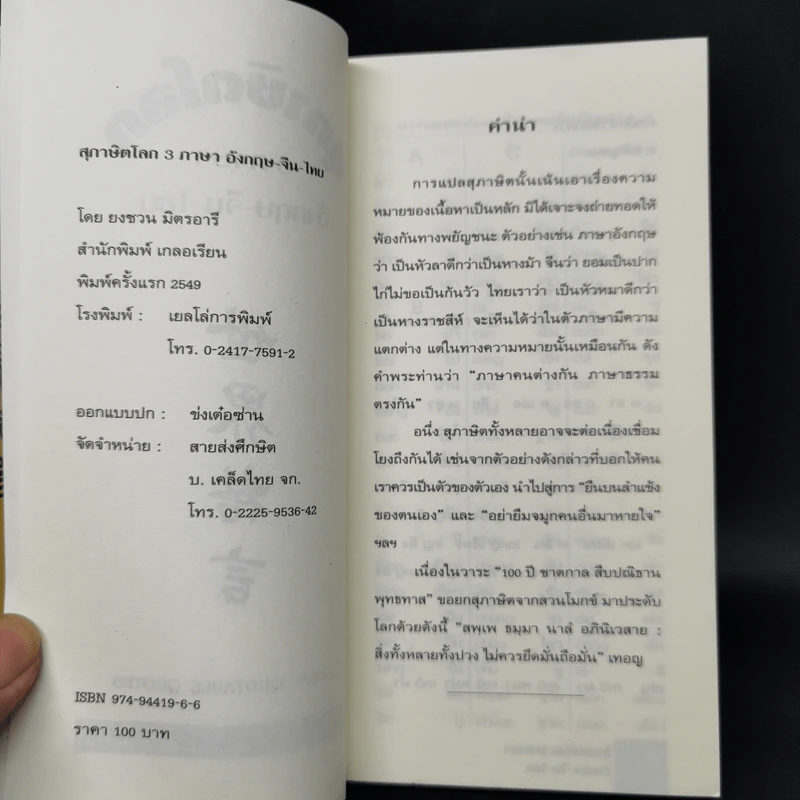 สุภาษิตโลก 3 ภาษา อังกฤษ-จีน-ไทย
โดย ยงชวน มิตรอารี
สำนักพิมพ์ เกลอเรียน
พิมพ์ครั้งแรก 2549
โรงพิมพ์ : เยลโล่การพิมพ์
โทร. 0-2417-7591-2
ออกแบบปก : ข่งเต๋อซ่าน
จัดจำหน่าย : สายส่งศึกษิต
บ. เคล็ดไทย จก.
โทร. 0-2225-9536-42
ISBN 974-94419-6-6
ราคา 100 บาท
คำนำ
การแปลสุภาษิตนั้นเน้นเอาเรื่องความ
หมายของเนื้อหาเป็นหลัก มิได้เจาะจงถ่ายทอดให้
พ้องกันทางพยัญชนะ ตัวอย่างเช่น ภาษาอังกฤษ
ว่า เป็นหัวลาดีกว่าเป็นหางม้า จีนว่า ยอมเป็นปาก
ไก่ไม่ขอเป็นก้นวัว ไทยเราว่า เป็นหัวหมาดีกว่า
เป็นหางราชสีห์ จะเห็นได้ว่าในตัวภาษามีความ
แตกต่าง แต่ในทางความหมายนั้นเหมือนกัน ดัง
คำพระท่านว่า "ภาษาคนต่างกัน ภาษาธรรม
ตรงกัน"
อนึ่ง สุภาษิตทั้งหลายอาจจะต่อเนื่องเชื่อม
โยงถึงกันได้ เช่นจากตัวอย่างดังกล่าวที่บอกให้คน
เราควรเป็นตัวของตัวเอง นำไปสู่การ "ยืนบนลำแข้ง
ของตนเอง" และ "อย่ายืมจมูกคนอื่นมาหายใจ"
ฯลฯ
เนื่องในวาระ "100 ปี ชาตกาล สืบปณิธาน
พุทธทาส" ขอยกสุภาษิตจากสวนโมกข์ มาประดับ
โลกด้วยดังนี้ "สพฺเพ ธมฺมา นาลํ อภินิเวสาย :
สิ่งทั้งหลายทั้งปวง ไม่ควรยึดมั่นถือมั่น" เทอญ